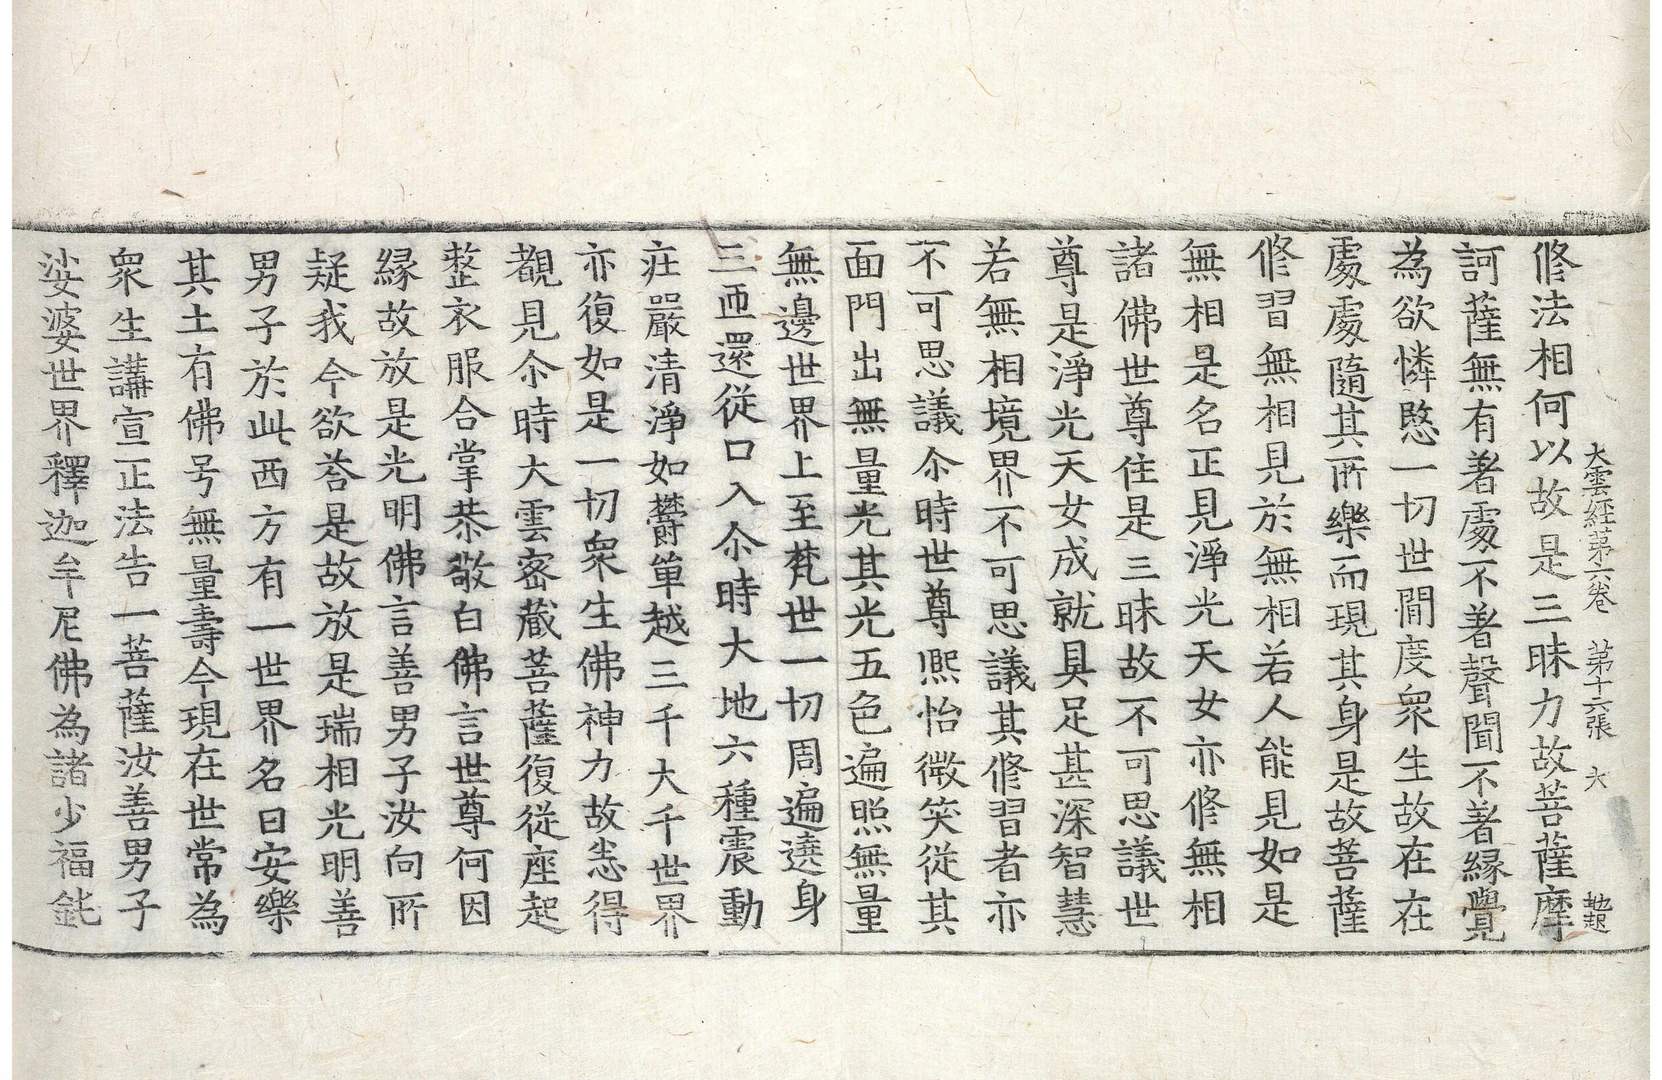 大雲経第六卷 第十六張 大
修法相何以故是三昧力故菩薩摩
訶薩無有著處不著聲聞不著緣覺
為欲憐愍一切世間度衆生故在在
處處隨其所樂而現其身是故菩薩
修習無相見於無相若人能見如是
無相是名正見淨光天女亦修無相
諸佛世尊住是三昧故不可思議世
尊是淨光天女成就具足甚深智慧
若無相境界不可思議其修習者亦
不可思議尒時世尊熈怡微笑從其
面門出無量光其光五色遍照無量
無邊世界上至梵世一切周遍遶身
三迊還從口入尒時大地六種震動
庄嚴清淨如欝單越三千大千世界
亦復如是一切衆生佛神力故悉得
覩見尒時大雲密藏菩薩復從座起
整衣服合掌恭敬白佛言世尊何因
緣故放是光明佛言善男子汝向所
疑我今欲荅是故放是瑞相光明善
男子於此西方有一世界名曰安樂
其土有佛号無量壽今現在世常為
衆生講宣正法告一菩薩汝善男子
娑婆世界釋迦牟尼佛為諸少福鈍